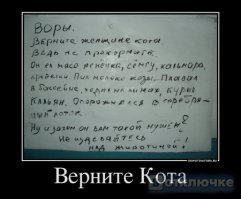 Воры.
Верните женщине кота
Ведь не прокормите
Он ел мясо ягнёнка, сёмгу, кальмара,
креветки. Пил молоко козы. Плавал
в бассейне, на лимах, курил
Кальян. Опорожнялся в серебря-
ный лоток.
Ну и зачем он вам такой нужен?
Не издевайтесь
над животиной!
Верните Кота
отключке